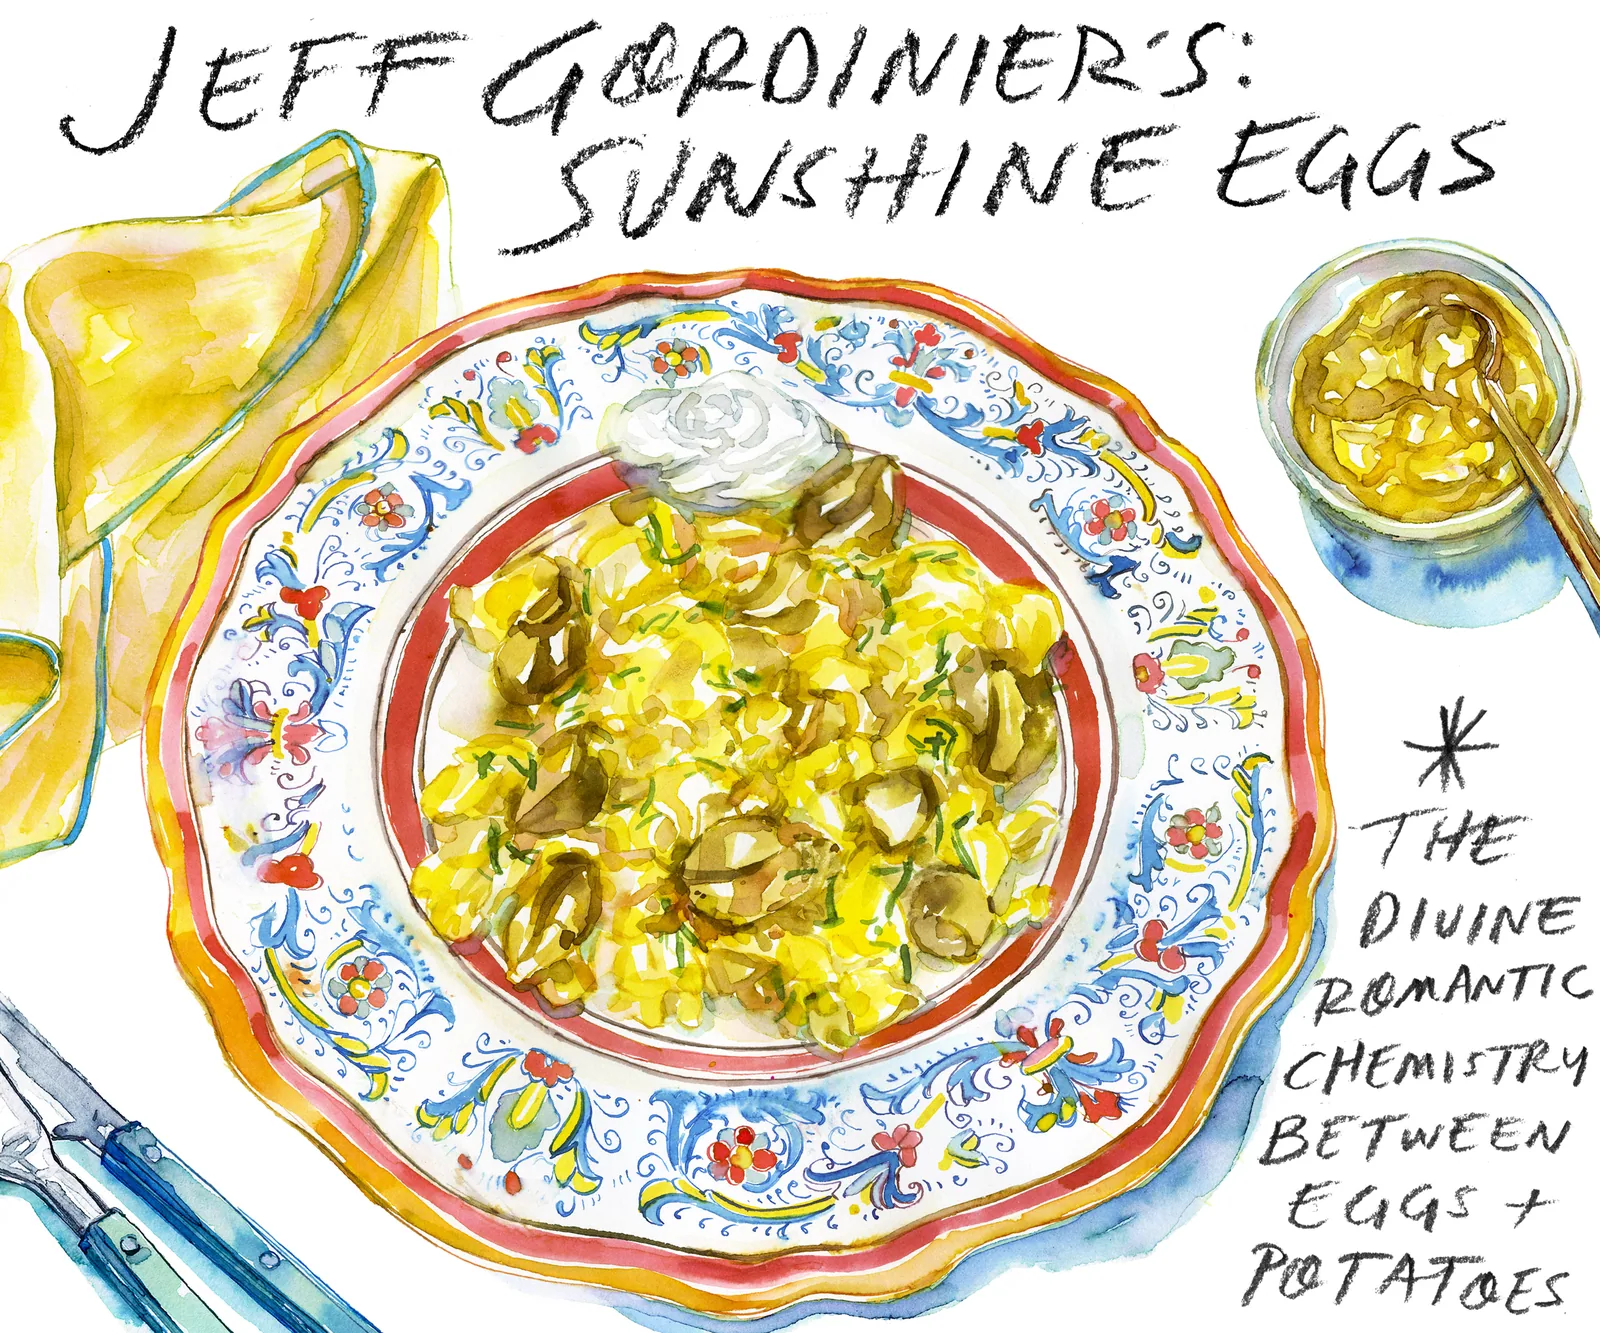 JEFF GORDINIER'S:
SUNSHINE EGGS
*
THE
DIVINE
ROMANTIC
CHEMISTRY
BETWEEN
EGGS +
POTATOES